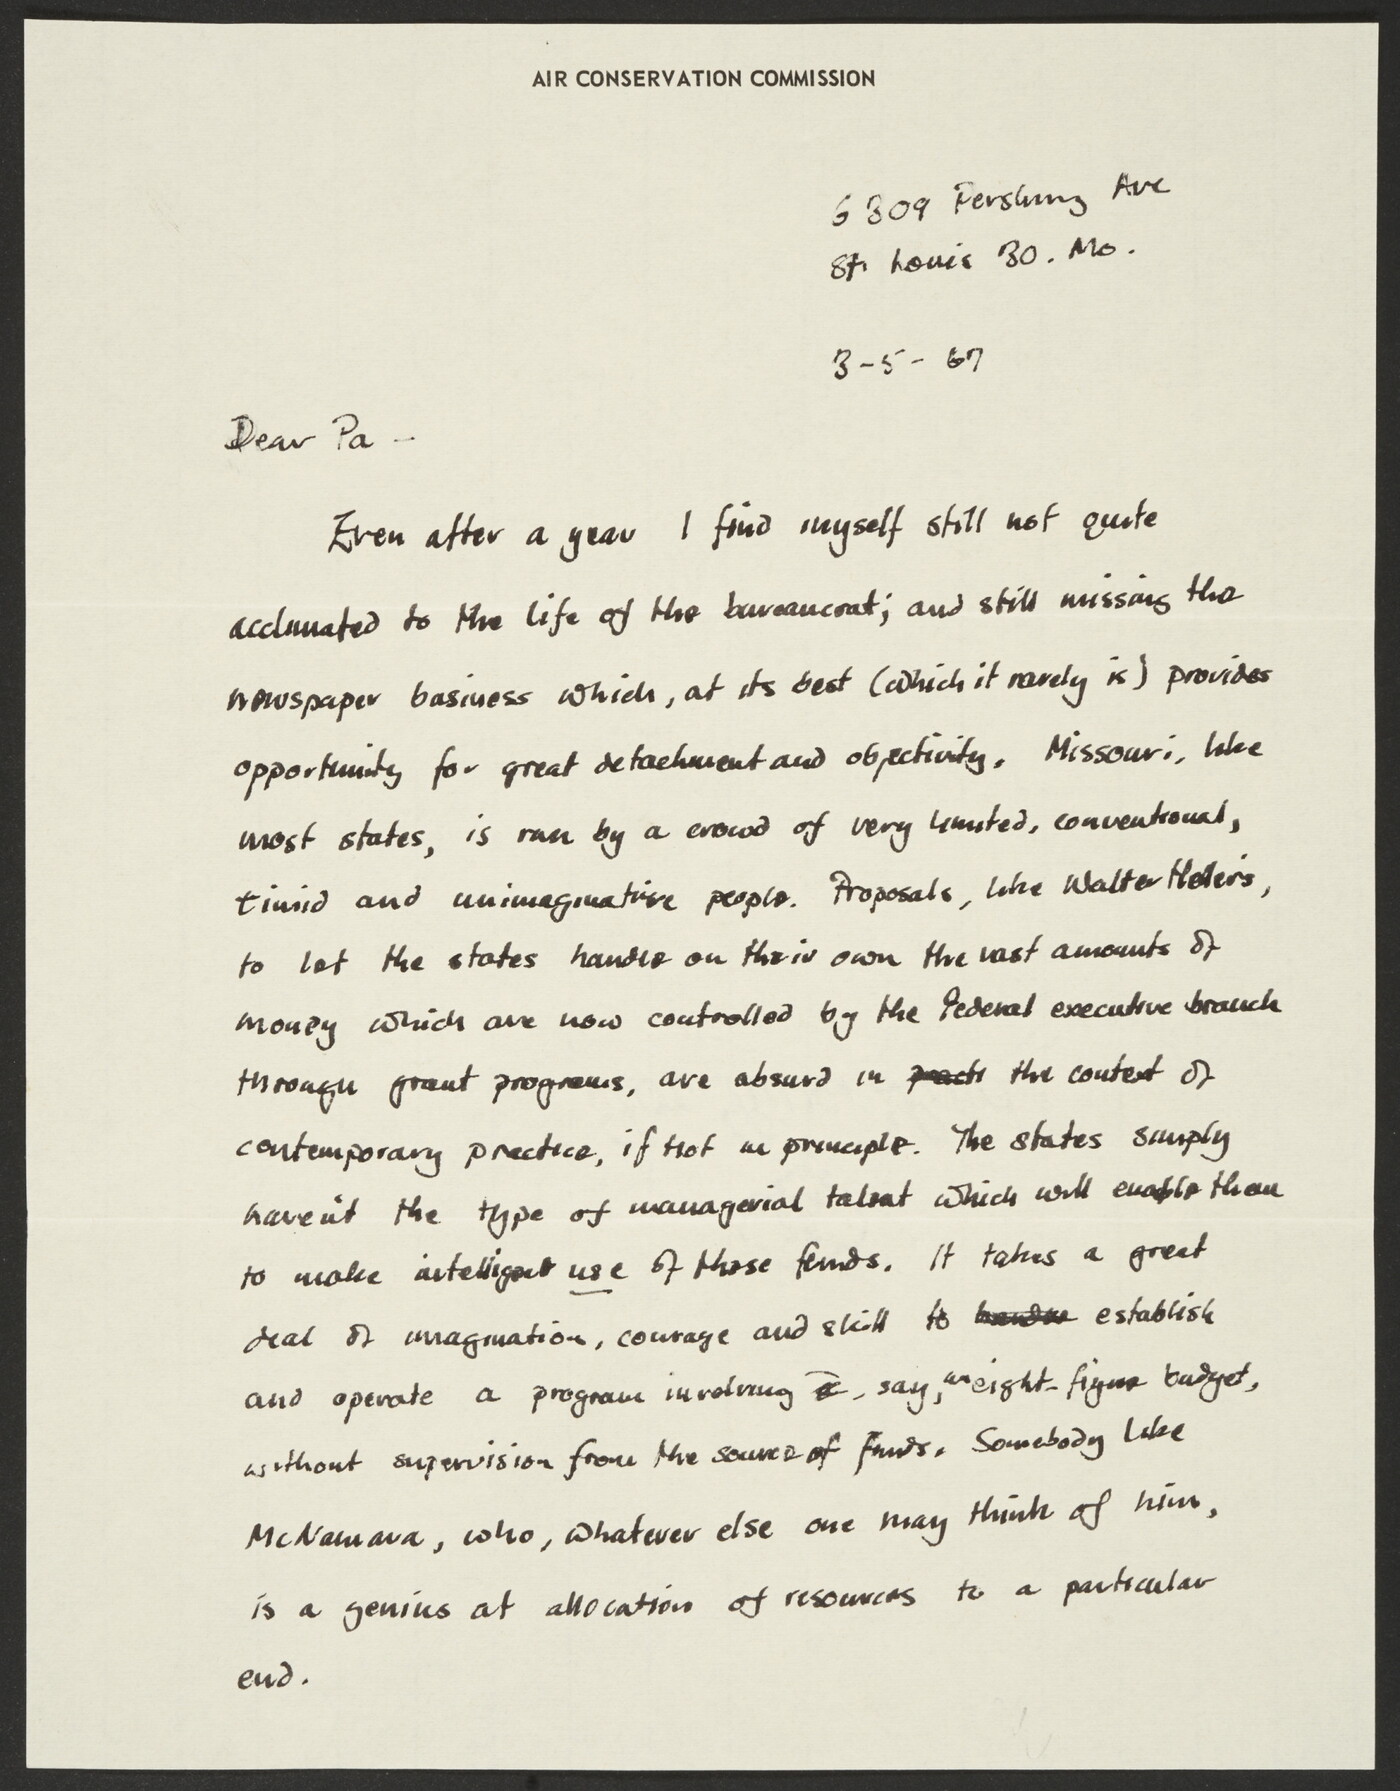 AIR CONSERVATION COMMISSION
6309 Pershing Ave
St. Louis 30. Mo.
3-5-67
Dear Pa -
Even after a year I find myself still not quite
acclimated to the life of the bureaucrat; and still missing the
newspaper business which, at its best (which it rarely is) provides
opportunity for great detachment and objectivity. Missouri, like
most states, is run by a crowd of very limited, conventional,
timid and unimaginative people. Proposals, like Walter Heller's,
to let the states handle on their own the vast amounts of
money which are now controlled by the Federal executive branch
through grant programs, are absurd in the context of
contemporary practice, if not in principle. The states simply
haven't the type of managerial talent which will enable them
to make intelligent use of those funds. It takes a great
deal of imagination, courage and skill to establish
and operate a program involving, say, an eight-figure budget,
without supervision from the source of funds. Somebody like
McNamara, who, whatever else one may think of him,
is a genius at allocation of resources to a particular
end.